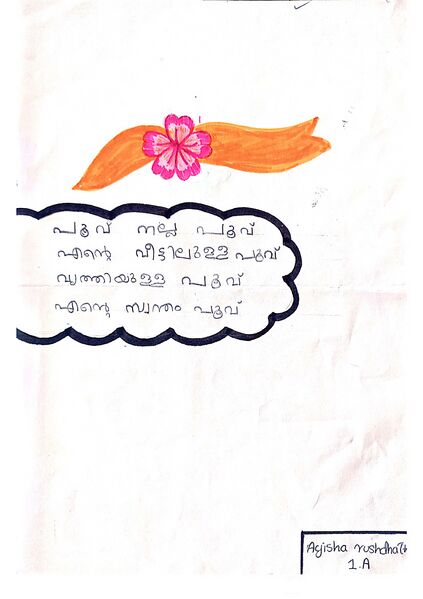 പൂവ് നല്ല പൂവ്
എന്റെ വീട്ടിലുള്ള പൂവ്
വൃത്തിയുള്ള പൂവ്
എന്റെ സ്വന്തം പൂവ്
Ayisha rushdha
1.A